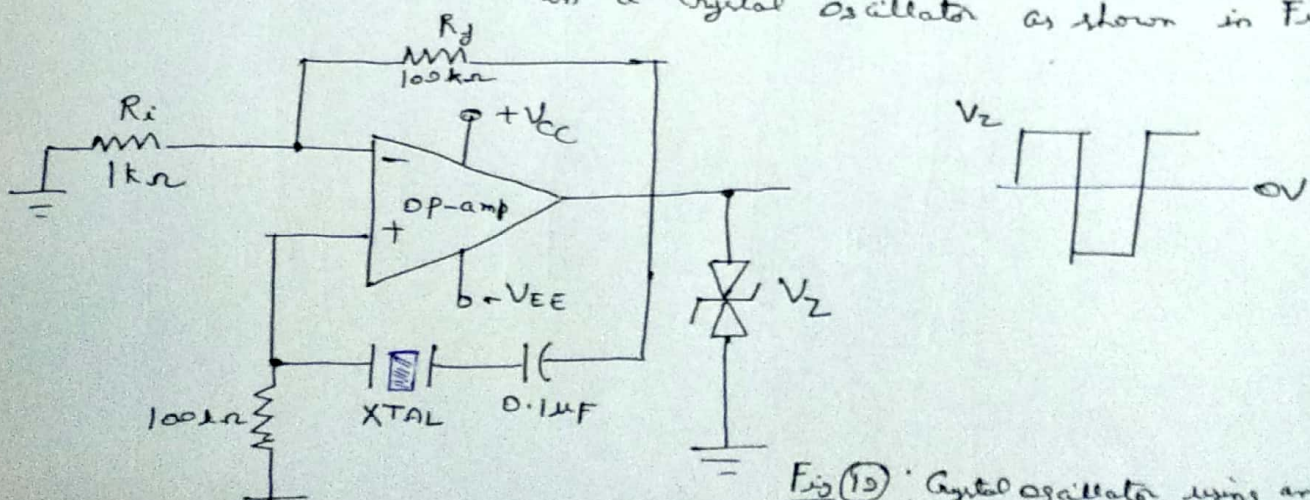 a Crystal Oscillator as shown in
Rf
100kΩ
Ri
1kΩ
+VCC
−
OP-amp
+
-VEE
Vz
Vz
0V
100kΩ
XTAL
0.1μF
Fig (15) Crystal oscillator using an